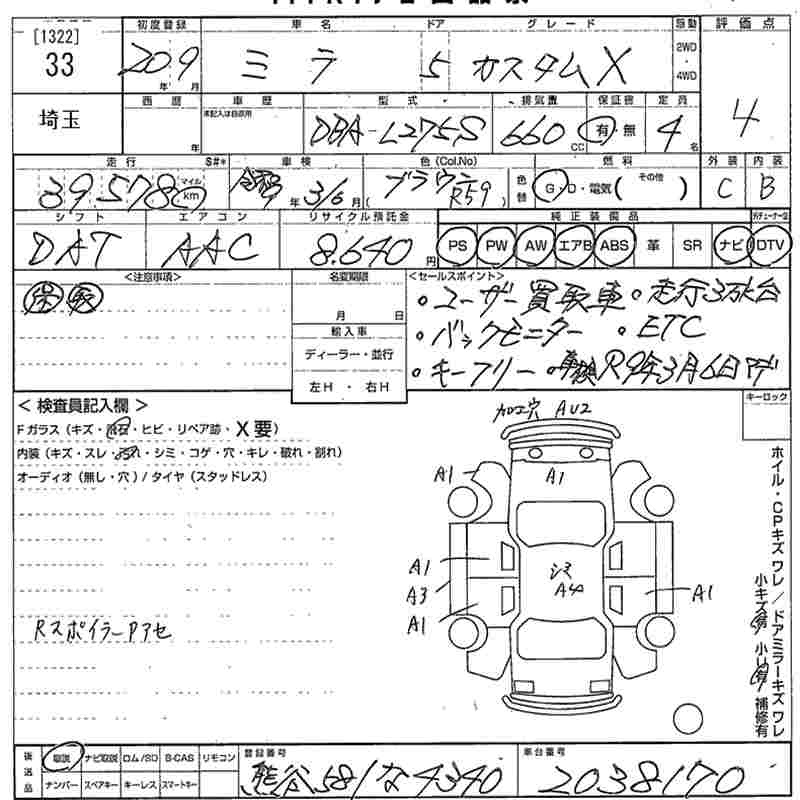 [1322]
33
埼玉
初度登録 車名 ドア グレード 駆動 評価点
20 9 ミラ 5 カスタムX 2WD・4WD 4
年 月
西暦 車歴 型式 排気量 保証書 定員
年 未記入は自家用 DBA-L275S 660cc 有・無 4名
走行 S#* 車検 色(Col.No) 燃料 外装 内装
39578 マイル km 年 3/6月 ブラウン R59 色替 G・D・電気( その他 ) C B
シフト エアコン リサイクル預託金 純正装備品
DAT AAC 8.640円 PS PW AW エアB ABS 革 SR ナビ DTV
<注意事項> 名変期限 <セールスポイント>
保 取
月 日
輸入車
ディーラー・並行
左H ・ 右H
・ユーザー買取車 ・走行3万km台
・バックモニター ・ETC
・キーフリー ・車検R9年3月6日マデ
キーロック
<検査員記入欄>
Fガラス(キズ・飛石・ヒビ・リペア跡・X要)
内装(キズ・スレ・汚れ・シミ・コゲ・穴・キレ・破れ・割れ)
オーディオ(無し・穴)/タイヤ(スタッドレス)
RスポイラーPアセ
加工穴 AU2
A1 A1
シミ
A4
A1
A3 A1
A1
ホイル・CPキズ ワレ/ドアミラーキズ ワレ
小キズ有 小U有 補修有
後送品 取説 ナビ取説 ロム/SD B-CAS リモコン
ナンバー スペアキー キーレス スマートキー
登録番号 熊谷581な4340
車台番号 2038170